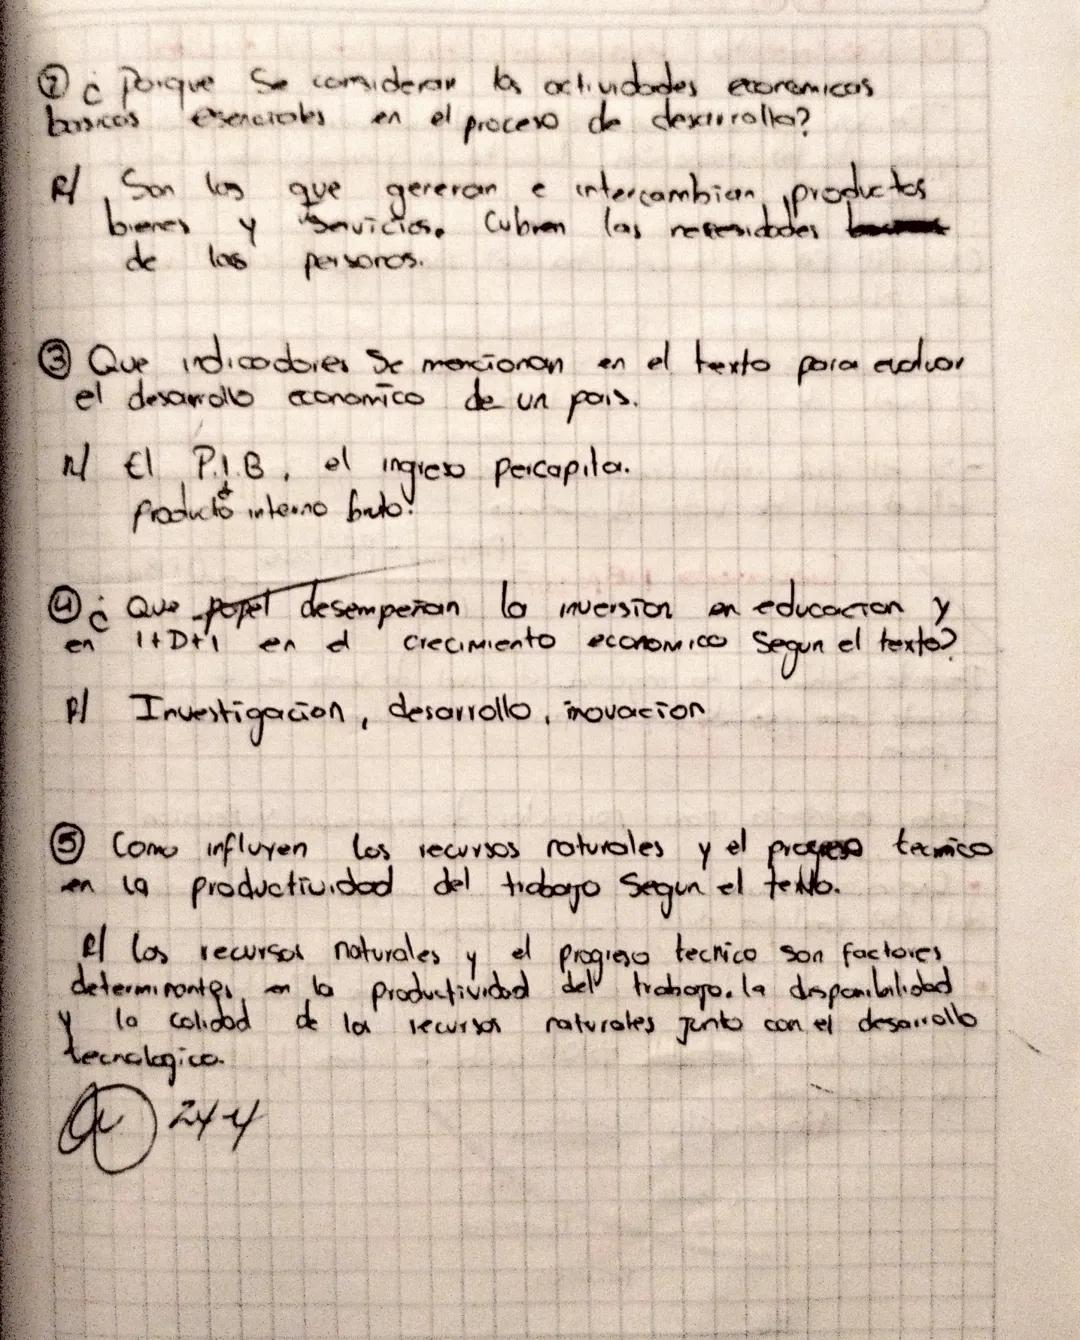 ② ¿ Porque se consideran las actividades economicas
basicas esenciales en el proceso de desarrollo?
R/ Son las que generan e intercambian productos
bienes y servicios. Cubren las necesidades
de las personas.
③ Que indicadores se mencionan en el texto para evaluar
el desarrollo economico de un pais.
R/ El P.I.B, el ingreso percapita.
producto interno bruto.
④ ¿ Que papel desempeñan la inversion en educacion y
en I+D+I en el crecimiento economico segun el texto?
R/ Investigacion, desarrollo, inovacion
⑤ Como influyen los recursos naturales y el progreso tecnico
en la productividad del trabajo segun el texto.
R/ los recursos naturales y el progreso tecnico son factores
determinantes en la productividad del trabajo. la disponibilidad
y la calidad de los recursos naturales junto con el desarrollo
tecnologico.
24-4